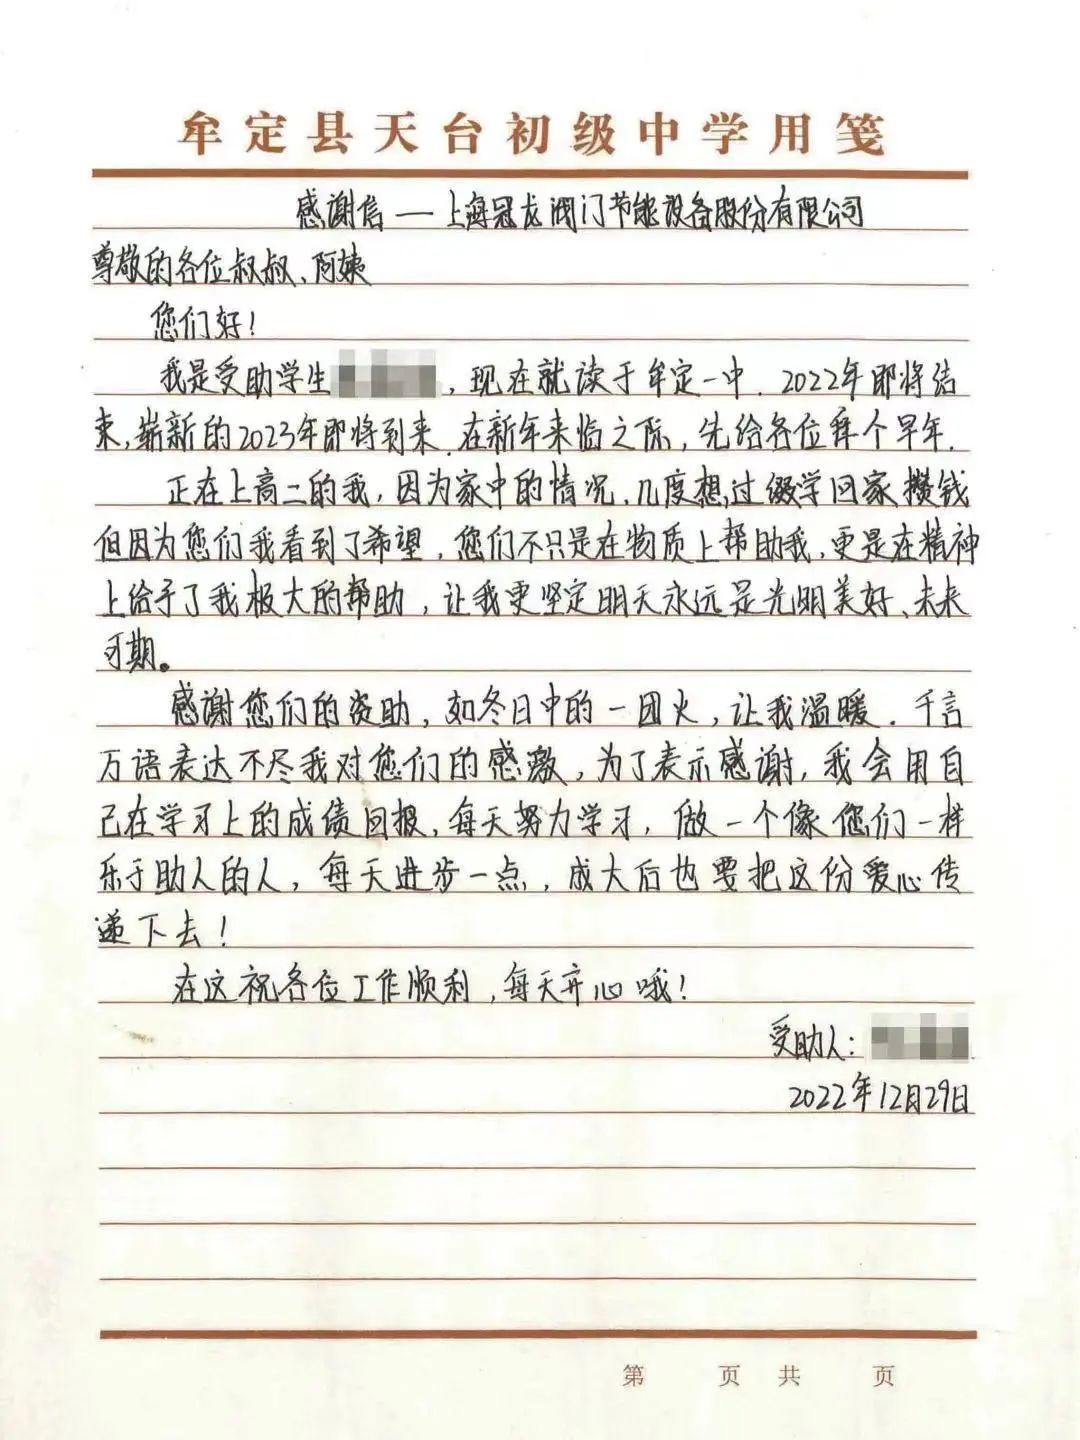 牟定县天台初级中学用笺
感谢信——上海冠龙阀门节能设备股份有限公司
尊敬的各位叔叔、阿姨
您们好!
我是受助学生，现在就读于牟定一中.2022年即将结
束,崭新的2023年即将到来.在新年来临之际,先给各位拜个早年.
正在上高二的我,因为家中的情况,几度想过缀学回家攒钱
但因为您们我看到了希望,您们不只是在物质上帮助我,更是在精神
上给予了我极大的帮助,让我更坚定明天永远是光明美好、未来
可期。
感谢您们的资助,如冬日中的一团火,让我温暖.千言
万语表达不尽我对您们的感激,为了表示感谢,我会用自
己在学习上的成绩回报,每天努力学习,做一个像您们一样
乐于助人的人,每天进步一点,成大后也要把这份爱心传
递下去!
在这祝各位工作顺利,每天开心哦!
受助人:
2022年12月29日
第 页 共 页